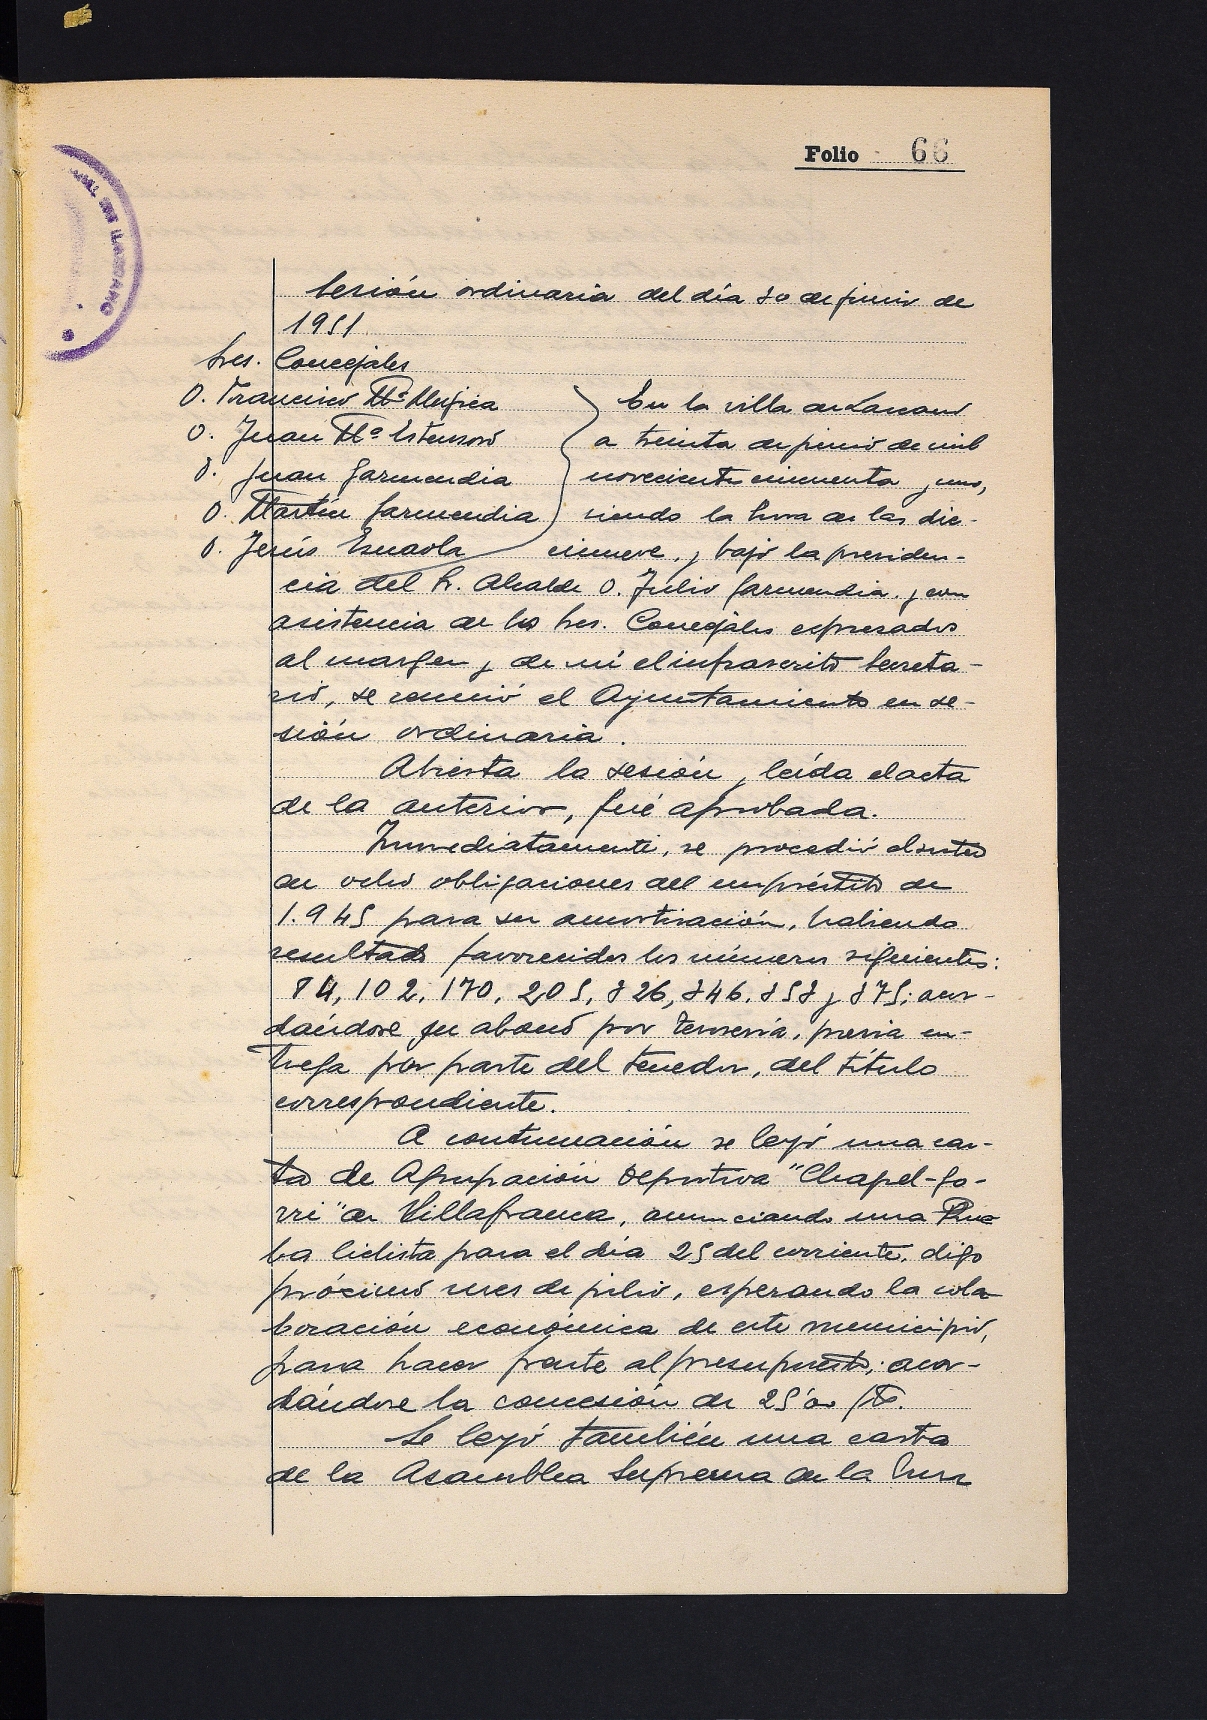 Folio 66
Sesión ordinaria del día 30 de junio de
1951.
Sres. Concejales
D. Francisco Mª Mujica
D. Juan Mª Estensoro
D. Juan Garmendia
D. Martín Garmendia
D. Jesús Escaola
En la villa de Lazcano
a treinta de junio de mil
novecientos cincuenta y uno,
siendo la hora de las die-
cinueve, y bajo la presiden-
cia del Sr. Alcalde D. Julio Garmendia, y con
asistencia de los Sres. Concejales expresados
al margen y de mí el infrascrito Secreta-
rio, se reunió el Ayuntamiento en se-
sión ordinaria.
Abierta la sesión y leída el acta
de la anterior, fué aprobada.
Inmediatamente, se procedió al sorteo
de ocho obligaciones del empréstito de
1.945 para su amortización, habiendo
resultado favorecidos los números siguientes:
84, 102, 170, 205, 326, 346, 353 y 375; acor-
dándose su abono por Tesorería, previa en-
trega por parte del tenedor, del título
correspondiente.
A continuación se leyó una car-
ta de Agrupación Deportiva "Chapel-go-
rri" de Villafranca, anunciando una Prue-
ba Ciclista para el día 25 del corriente, digo
próximo mes de julio, esperando la cola-
boración económica de este municipio,
para hacer frente al presupuesto; acor-
dándose la concesión de 25'00 pts.
Se leyó también una carta
de la Asamblea Suprema de la Cruz